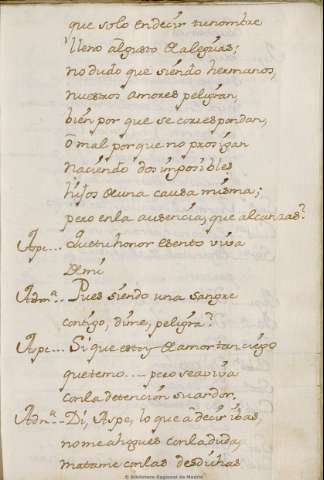 que solo en decir tu nombre
lleno al gusto de alegrias;
no dudo que siendo hermanos,
nuestros amores peligran,
bien por que se correspondan,
ò mal porque no prosigan
naciendo dos imposibles
hijos de una causa misma;
pero en la ausencia, que alcanzas?
Aspe... Que tu honor esento viva
de mi
Adm.ª.. Pues siendo una sangre
contigo, dime, peligra?
Aspe... Si que estoy de amor tan ciego
que temo.... pero se aviva
con la detencion su ardor.
Adm.ª.. Di, Aspe, lo que à decir ibas,
no me ahogues con la duda,
matame con las desdichas
© Biblioteca Regional de Madrid